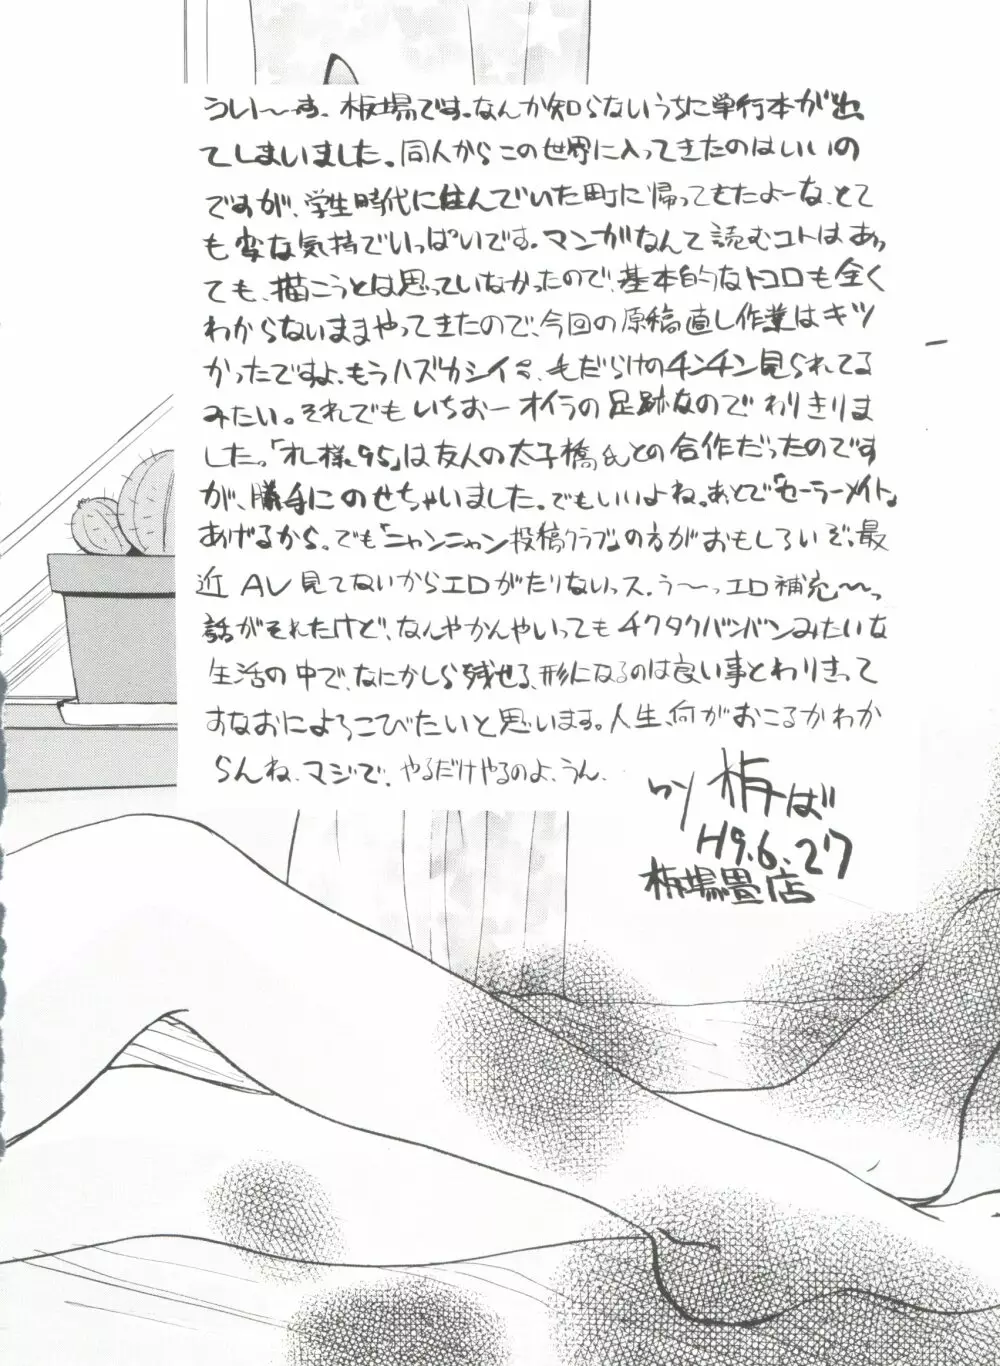 ういーす、板場です。なんか知らないうちに単行本が出
てしまいました。同人からこの世界に入ってきたのはいいの
ですが、学生時代に住んでいた町に帰ってもたよーな、とて
も変な気持でいっぱいです。マンガなんて読むコトはあっ
ても、描こうとは思っていなかったので、基本的なトコロも全く
わからないままやってきたので、今回の原稿直し作業はキツ
かったですよ、もうハズカシイミ、毛だらけのチンチン見られてる
みたい。それでもいちおーオイラの足跡なのでわりきりま
した。「オレ様95」は友人の太子橋氏との合作だったのです
が、勝手にのせちゃいました。でもいいよね。あとで「セーラーメイト」
あげるから。でも「ニャンニャン投稿クラブ」の方がおもしろいぞ。最
近AV見てないからエロがたりないっス。う〜っエロ補充〜っ
話がそれたけど、なんやかんやいってもチクタクバンバンみたいな
生活の中で、なにかしら残せる、形になるのは良い事とわりきって
すなおによろこびたいと思います。人生、何がおこるかわか
らんね、マジで、やるだけやるのよ、うん。
いり 板ば
H9.6.27
板場畳店